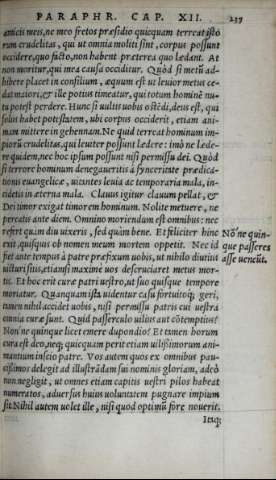 PARAPHR. CAP. XII. 237
amicis meis, ne meo fretos præsidio quicquam terreat istorum
rum crudelitas, qui ut omnia moliti sint, corpus possunt
occidere, quo facto, non habent præterea quo lædant. At
non moritur, qui mea causa occiditur. Quòd si metū adhibere
hibere placet in consilium, æquum est ut leuior metus cedat
dat maiori, & ille potius timeatur, qui totum hominē nutu
tu potest perdere. Hunc si uultis uobis ostēdi, deus est, qui
solus habet potestatem, ubi corpus occiderit, etiam animam
mam mittere in gehennam. Ne quid terreat hominum impiorū
piorū crudelitas, qui leuiter possunt lædere: imò ne lædere
re quidem, nec hoc ipsum possunt nisi permissu dei. Quòd
si terrore hominum denegaueritis à synceritate prædicationis
tionis euangelicæ, uicistis leuia ac temporaria mala, incidetis
cidetis in æterna mala. Clauus igitur clauum pellat, &
Dei timor exigat timorem hominum. Nolite metuere, ne
pereatis ante diem. Omnino moriendum est omnibus: nec
refert quàm diu uixeris, sed quàm bene. Et feliciter hinc
exit, quisquis ob nomen meum mortem oppetit. Nec id
Nōne quin-
que passeres
asse ueneūt.
fiet ante tempus à patre præfixum uobis, ut nihilo diutius
uicturi sitis, etiamsi maximè uos descruciaret metus mortis.
tis. Et hoc erit curæ patri uestro, ut suo quisque tempore
moriatur. Quanquam ista uidentur casu fortuitoq; geri,
tamen nihil accidet uobis, nisi permissu patris cui uestra
omnia curæ sunt. Quid passerculo uilius aut cōtemptius?
Nonne quinque licet emere dupondio? Et tamen horum
cura est deo, neq; quicquam perit etiam uilissimorum animantium
mantium inscio patre. Vos autem quos ex omnibus paucissimos
cissimos delegit ad illustrādam sui nominis gloriam, adeò
non neglegit, ut omnes etiam capitis uestri pilos habeat
numeratos, aduersus huius uoluntatem pugnare impium
sit. Nihil autem uolet ille, nisi quod optimū fore nouerit.
Itaq;